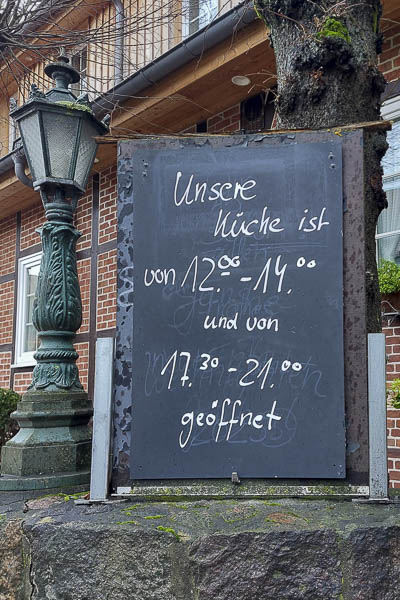 Unsere
Küche ist
von 12.00 - 14.00
und von
17.30 - 21.00
geöffnet